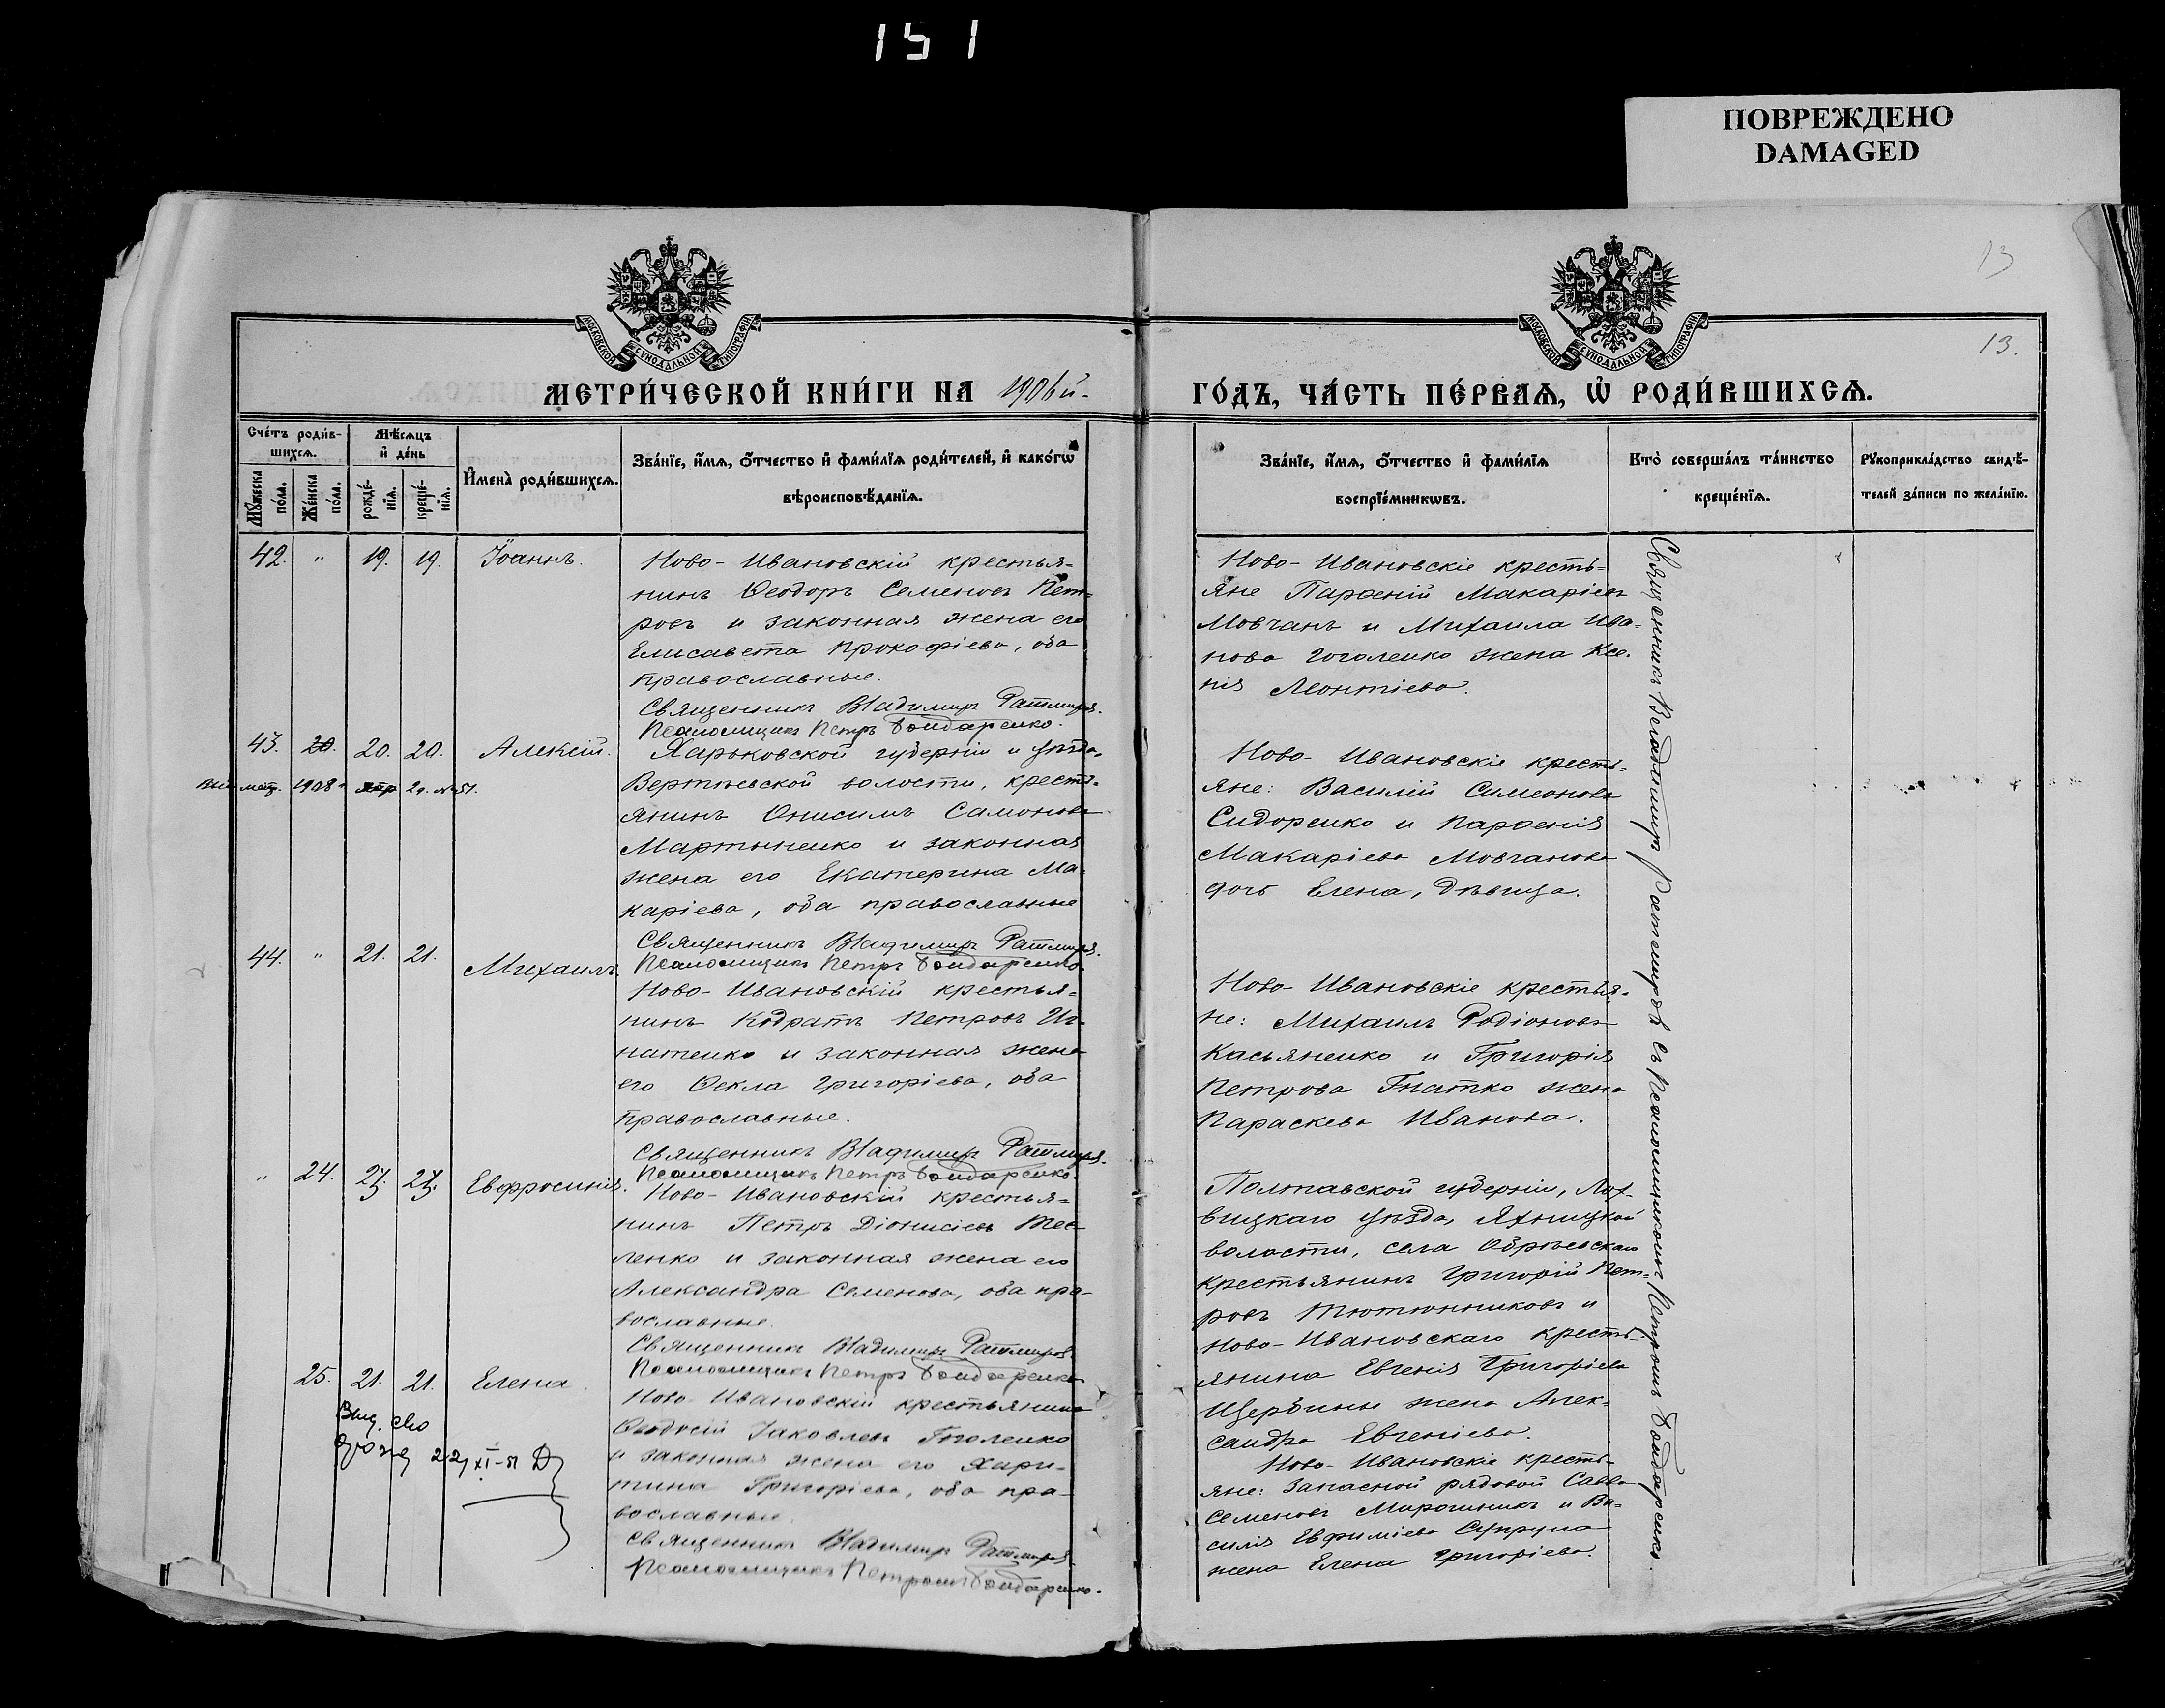 151
ПОВРЕЖДЕНО
DAMAGED
13
13.
МОСКОВСКОЙ СѴНОДАЛЬНОЙ ТИПОГРАФІИ
МОСКОВСКОЙ СѴНОДАЛЬНОЙ ТИПОГРАФІИ
МЕТРИ́ЧЕСКОЙ КНИ́ГИ НА 1906й.
ГО́ДЪ, ЧА́СТЬ ПЕ́РВАѦ, Ѽ РОДИ́ВШИХСѦ.
Сче́тъ роди́в-
шихсѧ.
Мꙋ́жеска по́ла.
Же́нска по́ла.
Мѣ́сѧцъ
и҆ де́нь
рожде́-нїѧ.
креще́-нїѧ.
И҆мена̀ роди́вшихсѧ.
Зва́нїе, и҆́мѧ, ѻ҆́тчество и҆ фами́лїѧ роди́телей, и҆ како́гѡ
вѣроисповѣ́данїѧ.
Зва́нїе, и҆́мѧ, ѻ҆́тчество и҆ фами́лїѧ
воспрїе́мникѡвъ.
Кто̀ соверша́лъ та́инство
креще́нїѧ.
Рꙋкоприкла́дство свидѣ́-
телей за́писи по жела́нїю.
42. " 19. 19. Іоаннъ.
Ново-Ивановскій крестья-
нинъ Ѳеодоръ Семеновъ Пет-
ровъ и законная жена его
Елисавета Прокофіева, оба
православные.
Священникъ Владимиръ Ратмировъ.
Псаломщикъ Петръ Бондаренко.
Ново-Ивановскіе кресть-
яне Парѳеній Макаріевъ
Мовчанъ и Михаила Ива-
нова Гоголенко жена Ксе-
нія Леонтіева.
43. 20. 20. 20. Алексій.
1908 21. №51.
Харьковской губерніи и уѣзда,
Вертѣевской волости, кресть-
янинъ Онисимъ Самоновъ
Мартыненко и законная
жена его Екатерина Ма-
каріева, оба православные
Священникъ Владимиръ Ратмировъ.
Псаломщикъ Петръ Бондаренко.
Ново-Ивановскіе кресть-
яне: Василій Симеоновъ
Сидоренко и Парѳенія
Макаріева Мовчанова
дочь Елена, дѣвица.
44. " 21. 21. Михаилъ.
Ново-Ивановскій крестья-
нинъ Кодратъ Петровъ Иг-
натенко и законная жена
его Ѳекла Григоріева, оба
православные.
Священникъ Владимиръ Ратмировъ.
Псаломщикъ Петръ Бондаренко.
Ново-Ивановскіе крестья-
не: Михаилъ Родіоновъ
Касьяненко и Григорія
Петрова Гнатко жена
Параскева Иванова.
" 24. Евфросинія.
Ново-Ивановскій крестья-
нинъ Петръ Діонисіевъ Тес-
ленко и законная жена его
Александра Семенова, оба пра-
вославные.
Священникъ Владимиръ Ратмировъ.
Псаломщикъ Петръ Бондаренко
Полтавской губерніи, Лох-
вицкаго уѣзда, Яхницкой
волости, села
крестьянинъ Григорій Пет-
ровъ Тютюнниковъ и
Ново-Ивановскаго кресть-
янина Евгенія Григоріева
Щербины жена Алек-
сандра Евгеніева.
25. 21. 21. Елена.
XI-51
Ново-Ивановскій крестьянинъ
Ѳеодосій Іаковлевъ Гоголенко
и законная жена его Хари-
тина Григоріева, оба пра-
вославные.
Священникъ Владимиръ Ратмировъ
Псаломщикъ Бондаренко.
Ново-Ивановскіе кресть-
яне: запасной рядовой Савва
Семеновъ Мирошникъ и Ва-
силія Евфиміева Супруна
жена Елена Григоріева.
Священникъ Владимиръ Ратмировъ съ Псаломщикомъ Петромъ Бондаренко.